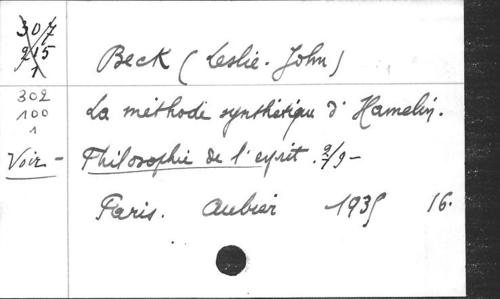 307
215
1
Beck (Leslie-John)
302
100
1
La méthode synthétique d'Hamelin.
Voir - Philosophie de l'esprit.
Paris. Aubier 1935 16.